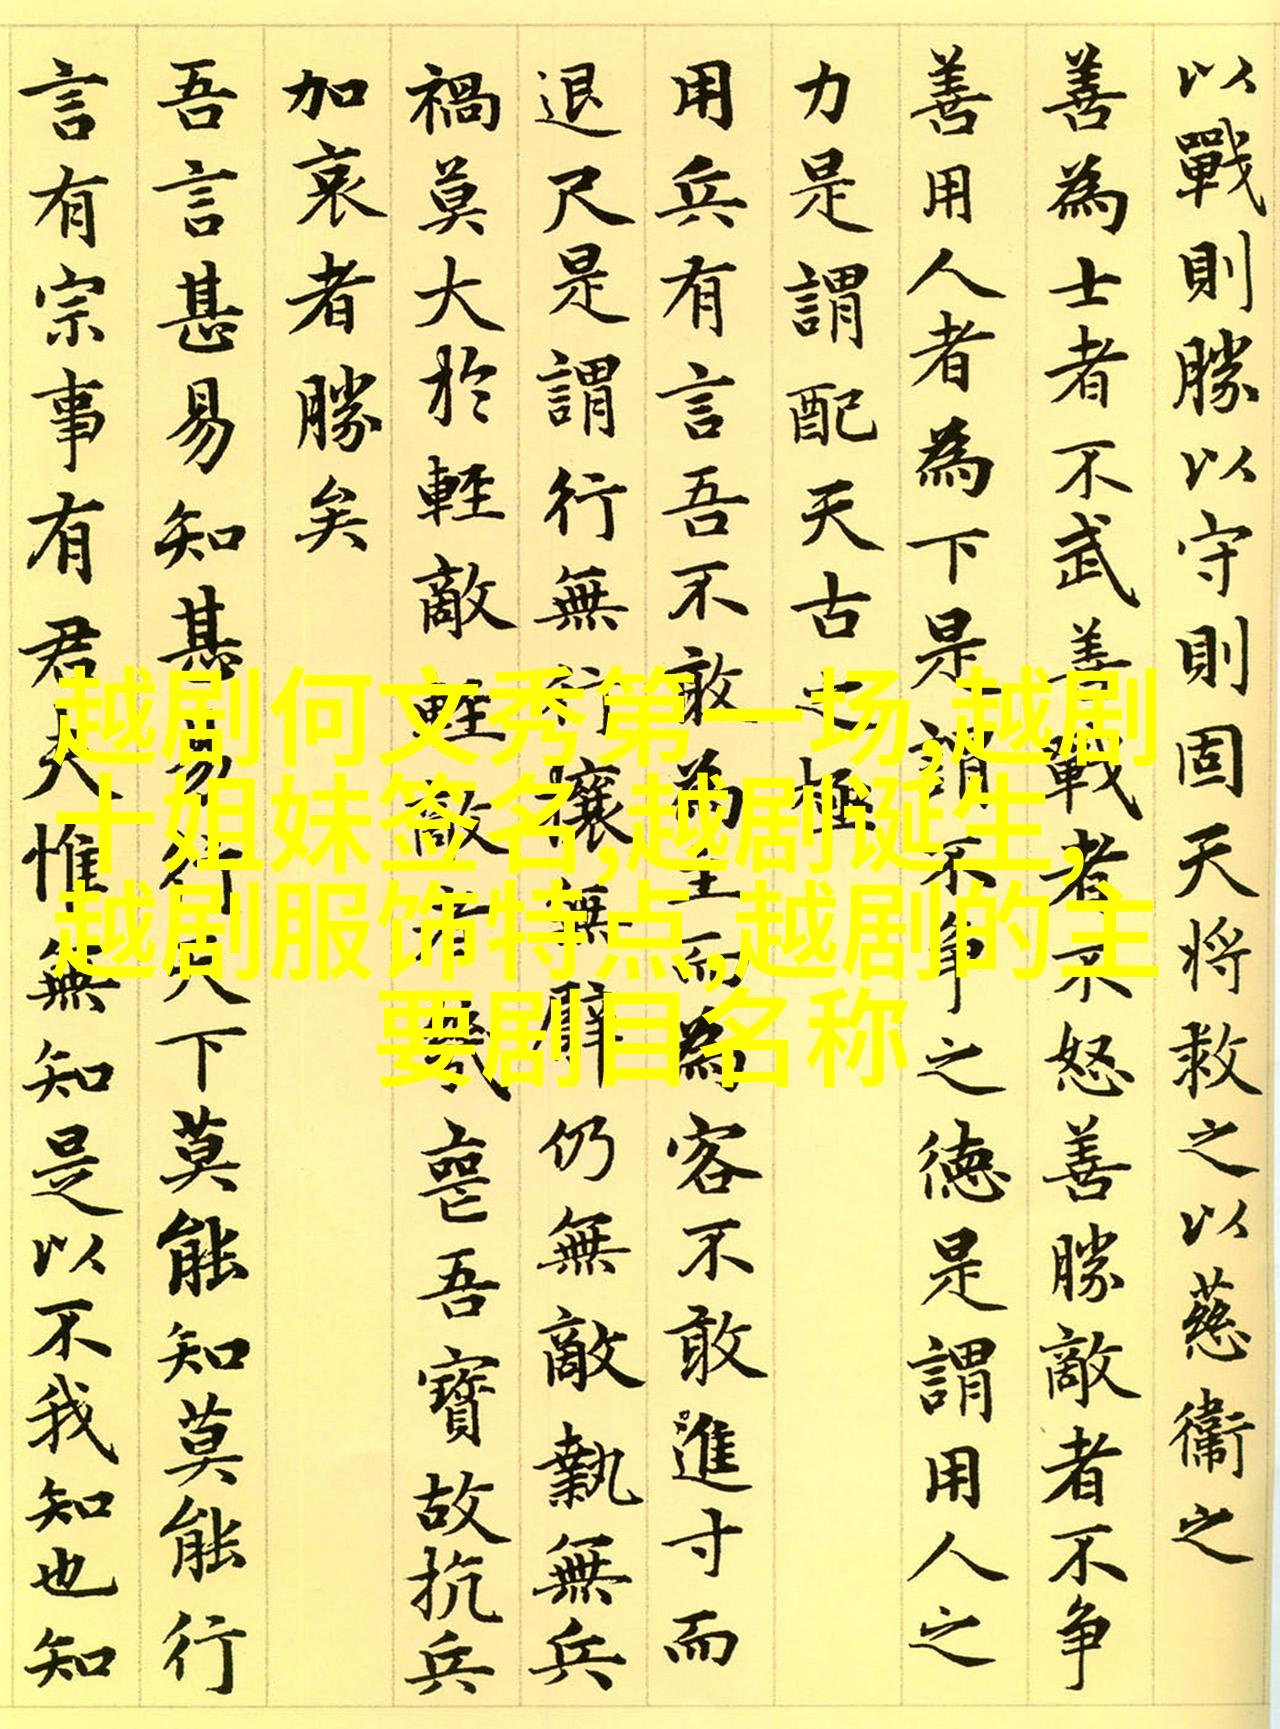 以戰則勝以守則固天将救之以慈衞之
善為士者不武善戰者不怒善勝敵者不争
善用人者為下是謂不争之德是謂用人之
力是謂配天古之極
用兵有言吾不敢為主而為客不敢進寸而
退尺是謂行無行攘無臂仍無敵執無兵
禍莫大於輕敵輕敵者幾喪吾寶故抗兵
加哀者勝矣
吾言甚易知甚易行天下莫能知莫能行
言有宗事有君夫惟無知是以不我知也知
越剧何文秀第一场,越剧
十姐妹签名,越剧诞生,
越剧服饰特点,越剧的主
要剧目名称